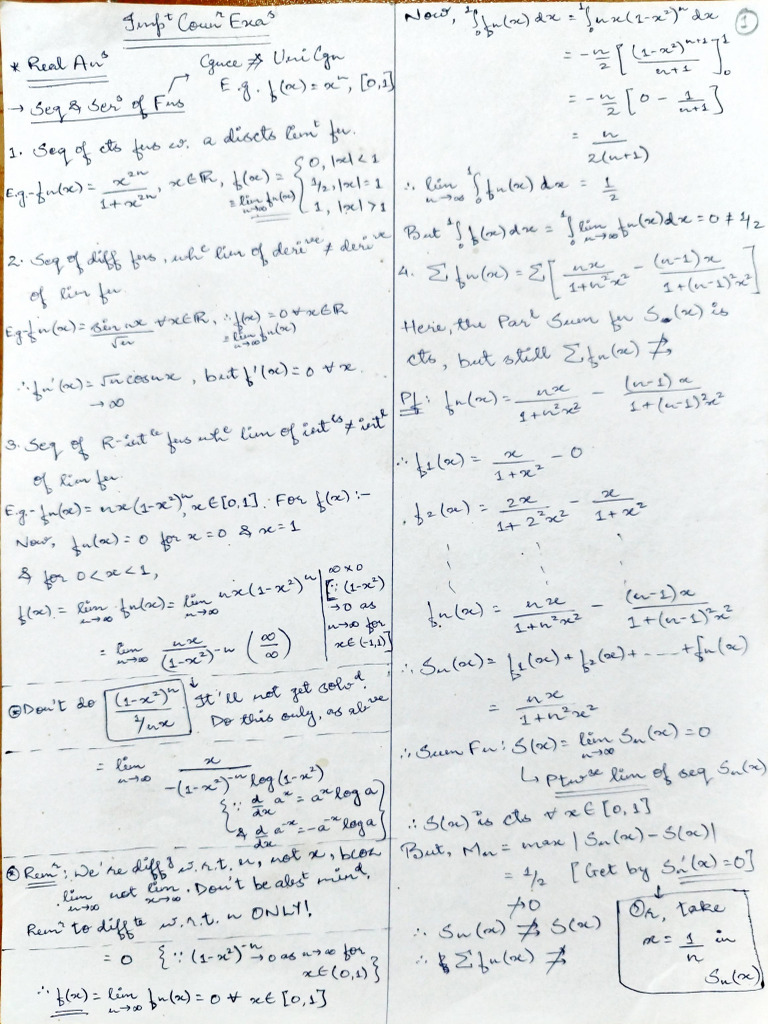 Imp^t Coun^r Exa^s
* Real An^s
→ Seq & Ser^s of Fns
Cgnce ⇏ Uni Cgn
E.g. f(x) = x^n, [0,1]
1. Seq of cts fns w. a discts lim^t fn.
E.g.- fn(x) = x^{2n}/(1+x^{2n}), x∈ℝ, f(x) = lim_{n→∞} fn(x) = { 0, |x|<1
1/2, |x|=1
1, |x|>1
2. Seq of diff fns, wh^c lim of deri^{ve} ≠ deri^{ve}
of lim fn.
E.g- fn(x) = sin nx/√n ∀ x∈ℝ, ∴ f(x) = lim_{n→∞} fn(x) = 0 ∀ x∈ℝ
∴ fn'(x) = √n cos nx, but f'(x) = 0 ∀ x.
→∞
3. Seq of R-int^{le} fns wh^c lim of int^{ls} ≠ int^l
of lim fn.
E.g.- fn(x) = nx(1-x²)^n, x∈[0,1]. For f(x) :-
Now, fn(x) = 0 for x=0 & x=1
& for 0<x<1,
f(x) = lim_{n→∞} fn(x) = lim_{n→∞} nx(1-x²)^n
∞×0
[∵ (1-x²)
→0 as
n→∞ for
x∈(-1,1)]
= lim_{n→∞} nx/(1-x²)^{-n} (∞/∞)
⊛ Don't do (1-x²)^n/(1/nx) It'll not get solv^d.
Do this only, as above
= lim_{n→∞} x/(-(1-x²)^{-n} log(1-x²))
{∵ d/dx a^x = a^x log a
& d/dx a^{-x} = -a^{-x} log a}
⊛ Rem^r: We're diff^g w.r.t. n, not x, bcoz
lim_{n→∞} not lim_{x→∞}. Don't be abst min^d.
Rem^r to diff^{te} w.r.t. n ONLY!
= 0 {∵ (1-x²)^{-n} →0 as n→∞ for
x∈(0,1)}
∴ f(x) = lim_{n→∞} fn(x) = 0 ∀ x∈[0,1]
①
Now, ∫₀¹ fn(x) dx = ∫₀¹ nx(1-x²)^n dx
= -n/2 [(1-x²)^{n+1}/(n+1)]₀¹
= -n/2 [0 - 1/(n+1)]
= n/(2(n+1))
∴ lim_{n→∞} ∫₀¹ fn(x) dx = 1/2
But ∫₀¹ f(x) dx = ∫₀¹ lim_{n→∞} fn(x) dx = 0 ≠ 1/2
4. Σ fn(x) = Σ [nx/(1+n²x²) - (n-1)x/(1+(n-1)²x²)]
Here, the Par^l Sum fn Sn(x) is
cts, but still Σ fn(x) ⇏
Pf: fn(x) = nx/(1+n²x²) - (n-1)x/(1+(n-1)²x²)
∴ f1(x) = x/(1+x²) - 0
, f2(x) = 2x/(1+2²x²) - x/(1+x²)
fn(x) = nx/(1+n²x²) - (n-1)x/(1+(n-1)²x²)
∴ Sn(x) = f1(x) + f2(x) + ----- + fn(x)
= nx/(1+n²x²)
∴ Sum Fn: S(x) = lim_{n→∞} Sn(x) = 0
↳ Ptw^{se} lim of seq Sn(x)
∴ S(x) is cts ∀ x∈[0,1]
But, Mn = max |Sn(x) - S(x)|
= 1/2 [Get by Sn'(x) = 0]
↛0
∴ Sn(x) ⇏ S(x)
∴ Σ fn(x) ⇏
Or, take
x = 1/n in
Sn(x)